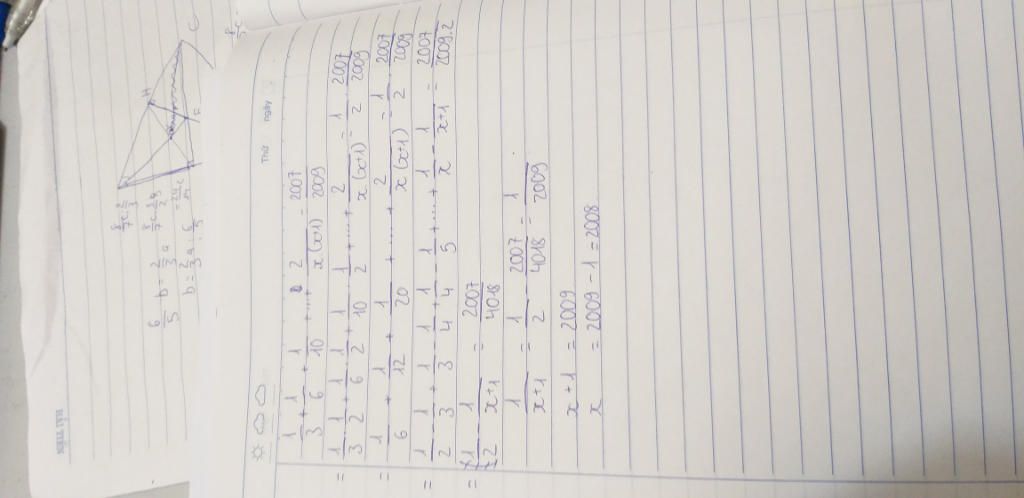 Thứ ngày
1/3 + 1/6 + 1/10 + ... + 2/x(x+1) = 2007/2009
= 1/3 . 1/2 + 1/6 . 1/2 + 1/10 . 1/2 + .... + 2/x(x+1) = 1/2 . 2007/2009
= 1/6 + 1/12 + 1/20 + .... + 2/x(x+1) = 1/2 . 2007/2009
= 1/2 - 1/3 + 1/3 - 1/4 + 1/4 - 1/5 + .... + 1/x - 1/x+1 = 2007/2009.2
= 1/2 - 1/x+1 = 2007/4018
1/x+1 = 1/2 - 2007/4018 = 1/2009
x+1 = 2009
x = 2009 - 1 = 2008
6/5 b = 2/3 a
b = 2/3 a : 6/5
H
C